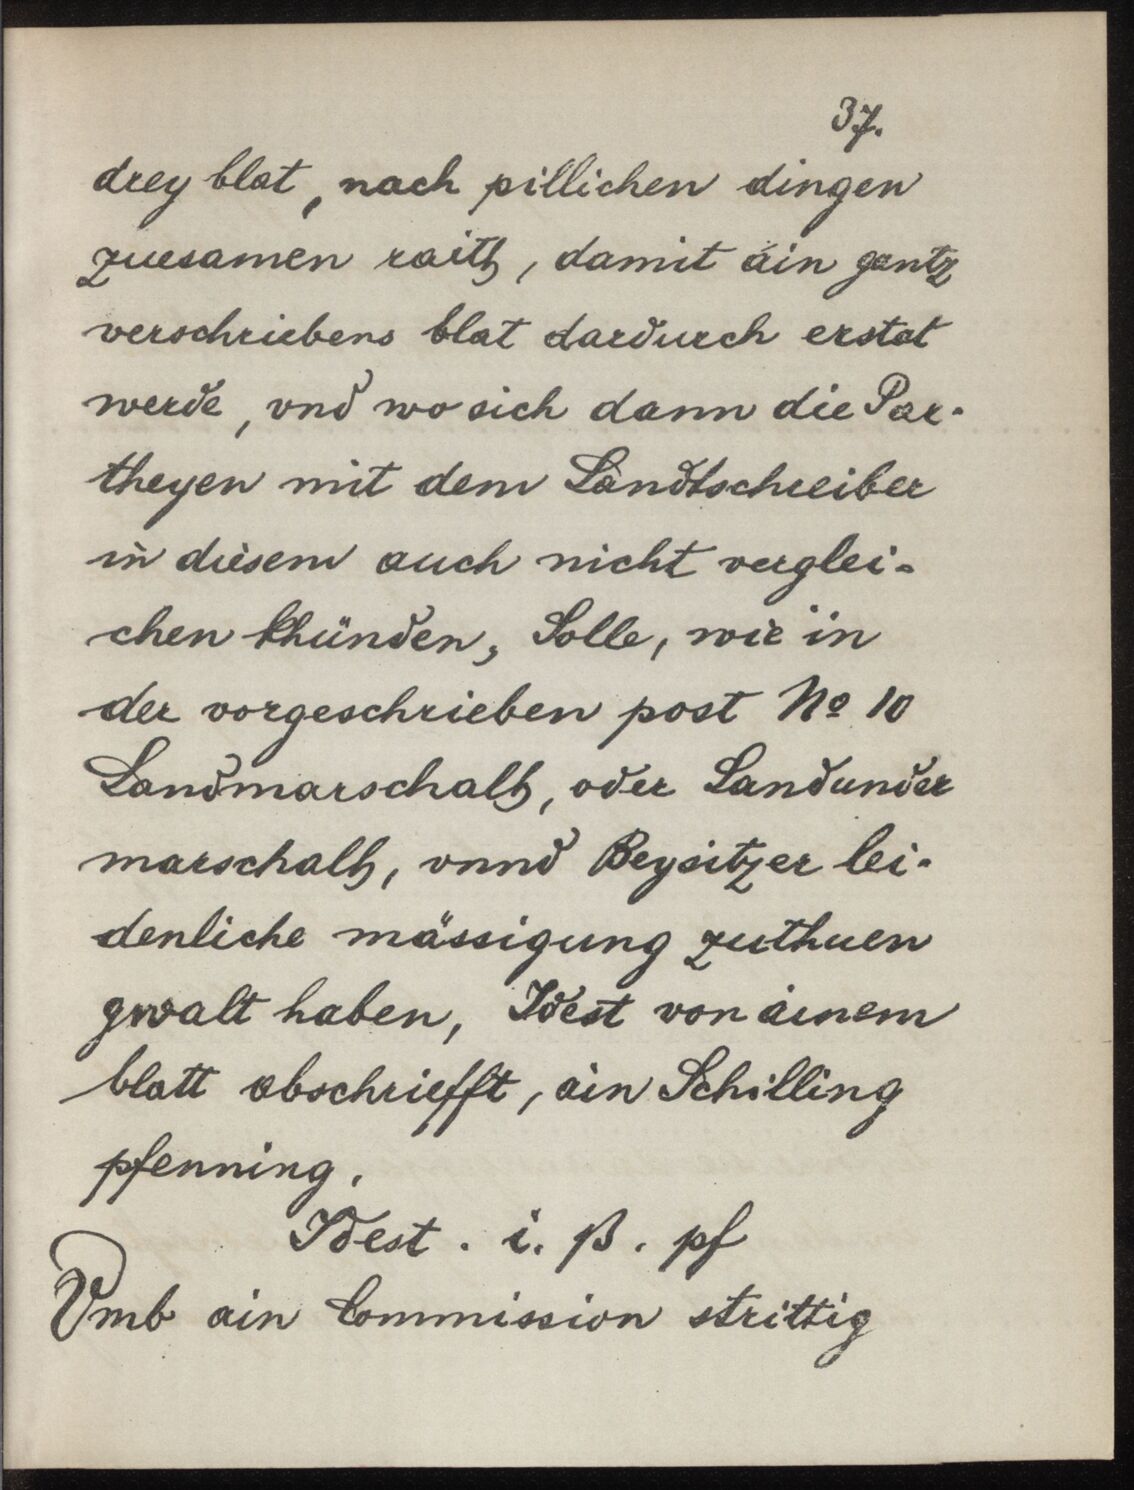 37.
drey blat, nach pillichen dingen
zuesamen raith, damit áin gantz
verschriebens blat dardurch erstat
werde, vnd wo sich dann die Par-
theyen mit dem Landtschreiber
in diesem auch nicht verglei-
chen khünden, Solle, wie in
der vorgeschrieben post No 10
Landmarschalh, oder Landunder
marschalh, vnnd Beysitzer lei-
denliche mässigung zuthuen
gwalt haben, Idest von ainem
blatt abschriefft, ain Schilling
pfenning.
Idest. i. ß. pf
Vmb ain Commission strittig